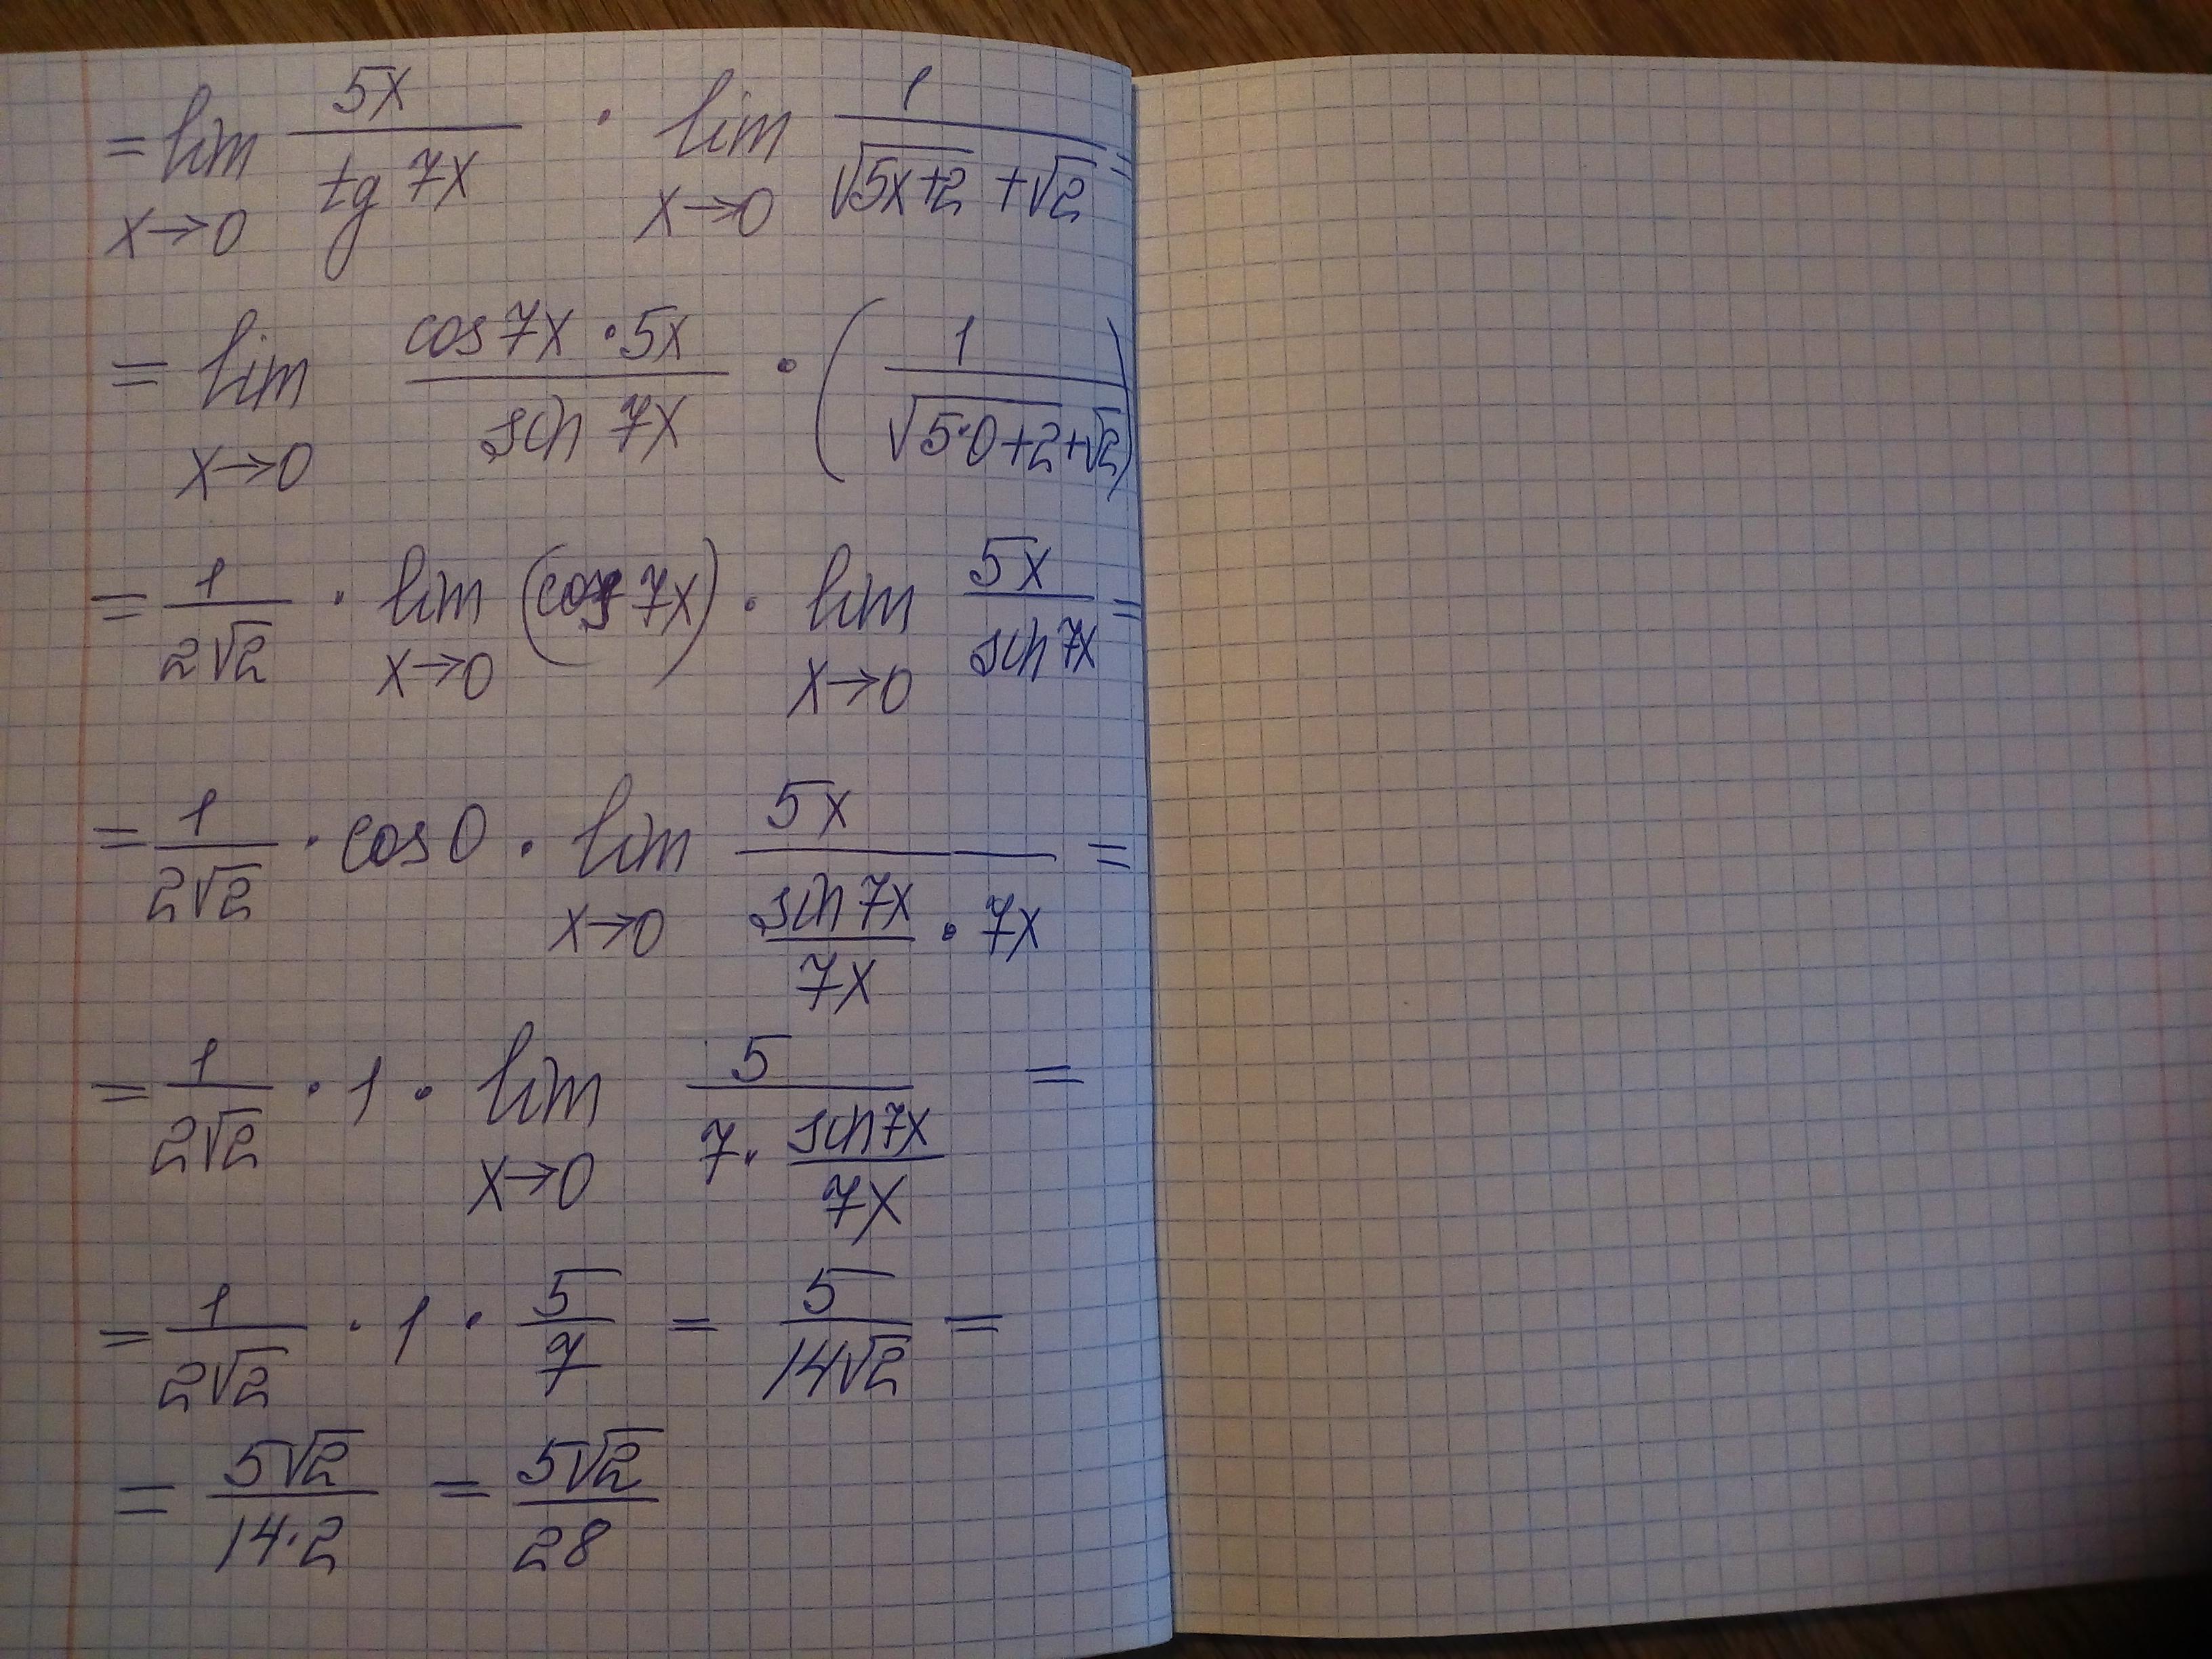 = lim x→0 5x / tg 7x · lim x→0 1 / (√(5x+2) + √2) =
= lim x→0 cos 7x · 5x / sin 7x · (1 / (√(5·0+2) + √2))
= 1 / 2√2 · lim x→0 (cos 7x) · lim x→0 5x / sin 7x =
= 1 / 2√2 · cos 0 · lim x→0 5x / (sin 7x / 7x · 7x) =
= 1 / 2√2 · 1 · lim x→0 5 / (7 · sin 7x / 7x) =
= 1 / 2√2 · 1 · 5/7 = 5 / 14√2 =
= 5√2 / 14·2 = 5√2 / 28